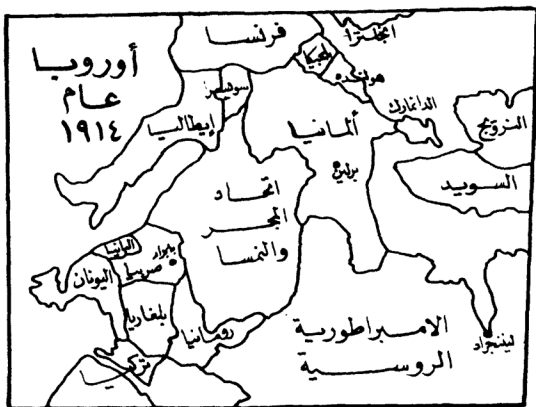 أوروبا
عام
١٩١٤
فرنسا
انجلترا
بلجيكا
هولنده
سويسرا
الدانمارك
النرويج
إيطاليا
ألمانيا
برلين
السويد
اتحاد
المجر
والنمسا
ألبانيا
بلجراد
صربيا
اليونان
بلغاريا
رومانيا
تركيا
الامبراطورية
الروسية
ليننجراد